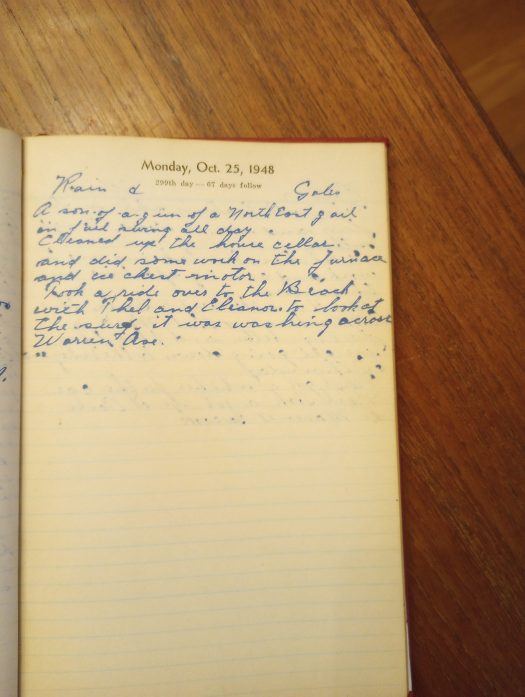 Monday, Oct. 25, 1948
299th day — 67 days follow
Rain & Gales
A son-of-a-gun of a North East gail
in full swing all day.
Cleaned up the house cellar
and did some work on the furnace
and ice chest motor.
Took a ride over to the Beach
with Thel and Eleanor to look at
the surf. it was washing across
Warren Ave.